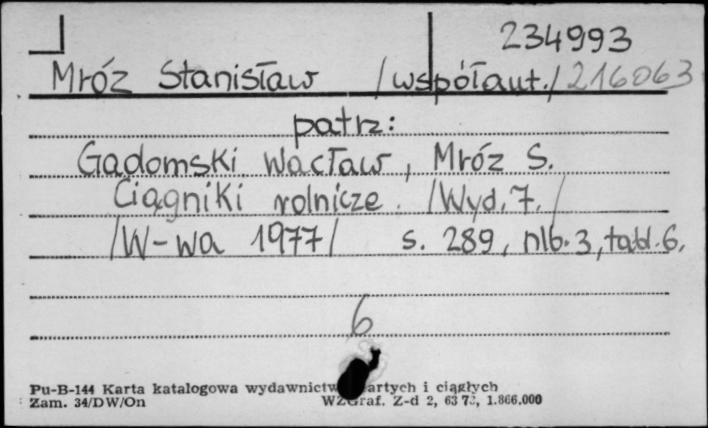 234993
Mróz Stanisław /współaut./ 216063
patrz:
Gadomski Wacław, Mróz S.
Ciągniki rolnicze. /Wyd. 7./
/W-wa 1977/ s. 289, nlb. 3, tabl. 6.
6
Pu-B-144 Karta katalogowa wydawnictw artych i ciągłych
Zam. 34/DW/On WZGraf. Z-d 2, 1.866.000